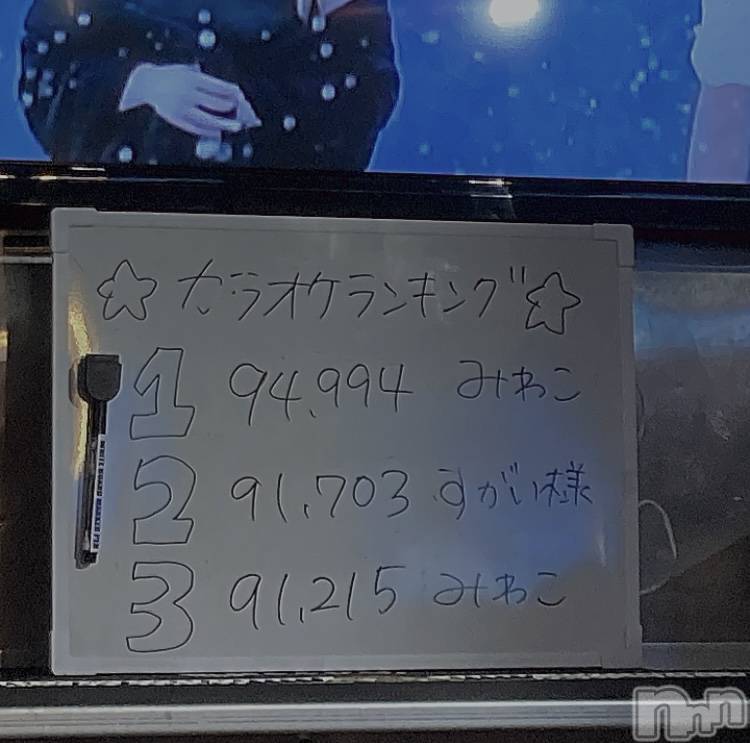 ☆カラオケランキング☆
1 94.994 みわこ
2 91.703 すがい様
3 91.215 みわこ
WHITE BOARD MARKER
nnn